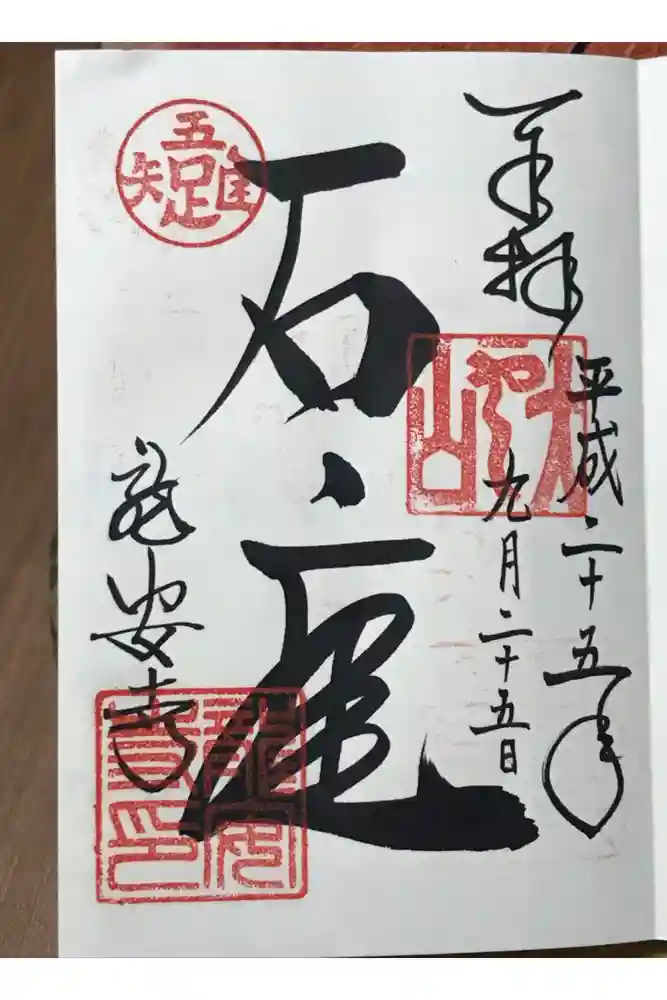 奉拝
平成二十五年
九月二十五日
大雲山
石庭
吾唯足知
龍安寺